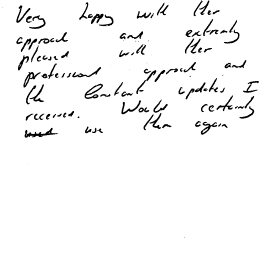 Very happy with ther
approach and extremly
pleased with ther
professional approach and
the constant updates I
received. Would certainly
use them again